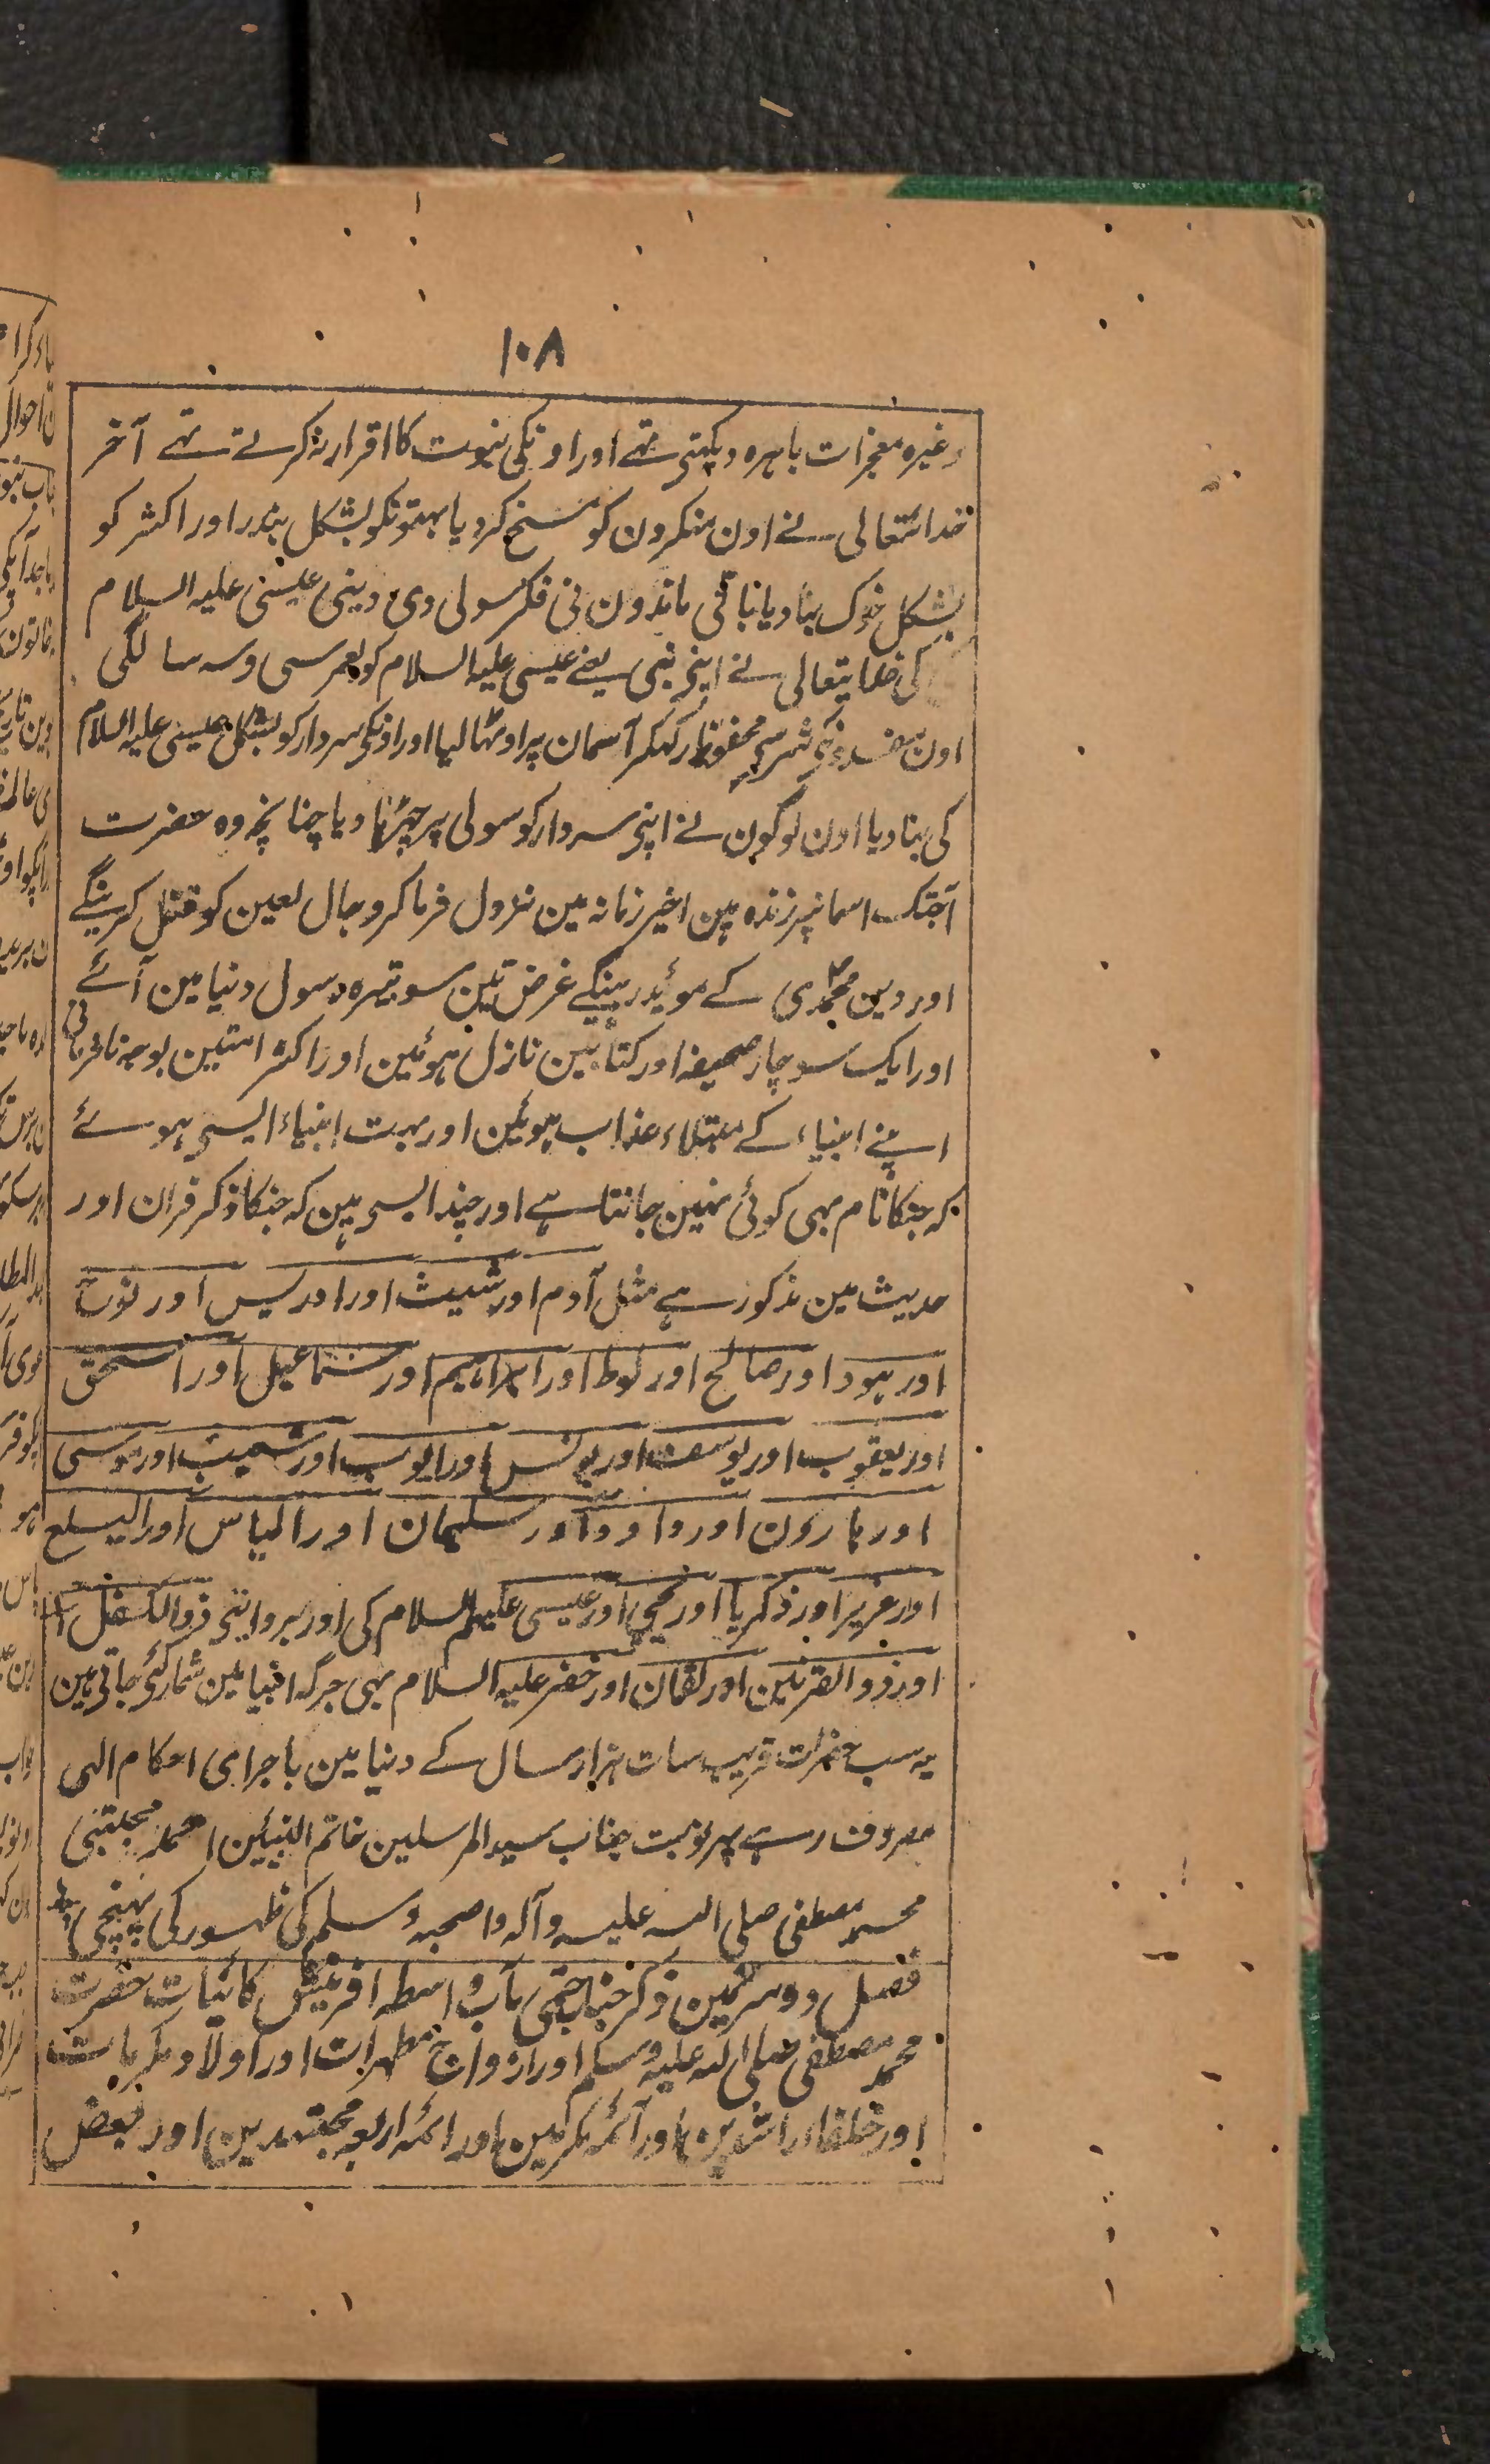 ۱۰۸
وغیرہ معجزات باہرہ دیکہتی تہے اور اونکی نبوت کا اقرار نہ کرتے تہے آخر
خدائتعالی نے اون منکرون کو مسخ کردیا بہتونکو بشکل بندر اور اکثر کو
بشکل خوک بنادیا باقی ماندون نی فکر سولی دی دینی عیسیٰ علیہ السلام
کی خدایتعالی نے اپنی نبی یعنے عیسی علیہ السلام کو بعمر سی وسہ سالگی
اون مفسدونکی شر سی محفوظ رکہکر آسمان پر اوٹہا لیا اور اونکی سردار کو بشکل عیسیٰ علیہ السلام
کی بنا دیا اون لوگون نے اپنی سردار کو سولی پر چڑہا دیا چنانچہ وہ حضرت
آجتک اسمانپر زندہ ہین اخیر زمانہ مین نزول فرماکر دجال لعین کو قتل کرینگے
اور دین محمدی کے موئد رہینگے غرض تین سو تیرہ رسول دنیا مین آئے
اور ایک سو چار صحیفہ اور کتابین نازل ہوئین اور اکثر امتین بوجہ نافرمانی
اپنے انبیاء کے مبتلاء عذاب ہوئین اور بہت انبیاء ایسی ہوئے
کہ جنکا نام بہی کوئی نہین جانتا ہے اور چند ایسی ہین کہ جنکا ذکر قران اور
حدیث مین مذکور ہے مثل آدم اور شیث اور ادریس اور نوح
اور ہود اور صالح اور لوط اور ابراہیم اور سماعیل اور اسحق
اور یعقوب اور یوسف اور یونس اور ایوب اور شعیب اور موسی
اور ہارون اور داوود اور سلیمان اور الیاس اور الیسلع
اور عزیر اور ذکریا اور یحیی اور عیسی علیہم السلام کی اور بروایتی ذوالکفل
اور ذوالقرنین اور لقمان اور خضر علیہ السلام بہی جرگہ انبیا مین شمار کئی جاتی ہین
یہ سب حضرات قریب سات ہزار سال کے دنیا مین باجرای احکام الہی
مصروف رہے پہر نوبت جناب سید المرسلین خاتم النبیین احمد مجتبی
محمد مصطفی صلی اللہ علیہ وآلہ واصحبہ وسلم کی ظہور کی پہنچی
فصل دوسرےمین ذکر جناب ختمی مآب واسطہ افرینش کائنات حضرت
محمد مصطفی صلی اللہ علیہ وسلم اور ازواج مطہرات اور اولاد مکرمات
اور خلفاء راشدین اور آئمہ مکرمین اور ائمہ اربعہ مجتہدین اور بعض